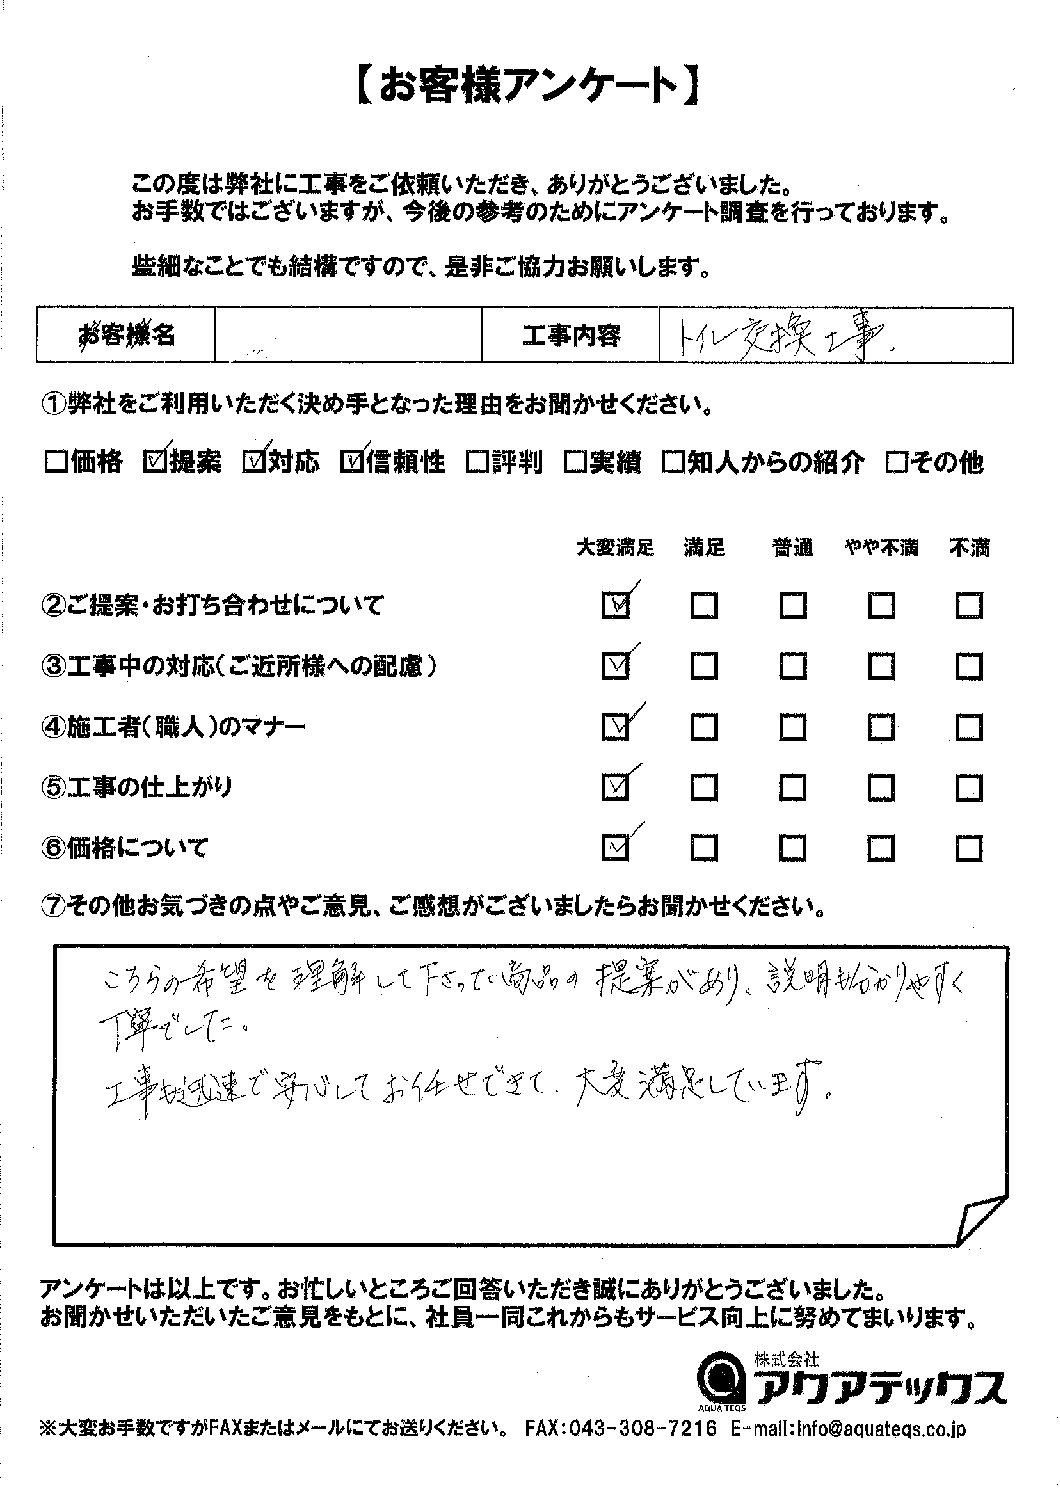 【お客様アンケート】
この度は弊社に工事をご依頼いただき、ありがとうございました。
お手数ではございますが、今後の参考のためにアンケート調査を行っております。
些細なことでも結構ですので、是非ご協力お願いします。
お客様名 工事内容 トイレ交換工事.
①弊社をご利用いただく決め手となった理由をお聞かせください。
□価格 ☑提案 ☑対応 ☑信頼性 □評判 □実績 □知人からの紹介 □その他
大変満足 満足 普通 やや不満 不満
②ご提案・お打ち合わせについて ☑ □ □ □ □
③工事中の対応(ご近所様への配慮) ☑ □ □ □ □
④施工者(職人)のマナー ☑ □ □ □ □
⑤工事の仕上がり ☑ □ □ □ □
⑥価格について ☑ □ □ □ □
⑦その他お気づきの点やご意見、ご感想がございましたらお聞かせください。
こちらの希望を理解して下さってい商品の提案があり、説明も分かりやすく
丁寧でした。
工事も迅速で安心してお任せできて、大変満足しています。
アンケートは以上です。お忙しいところご回答いただき誠にありがとうございました。
お聞かせいただいたご意見をもとに、社員一同これからもサービス向上に努めてまいります。
株式会社
アクアテックス
AQUA TEQS
※大変お手数ですがFAXまたはメールにてお送りください。 FAX:043-308-7216 E-mail:info@aquateqs.co.jp